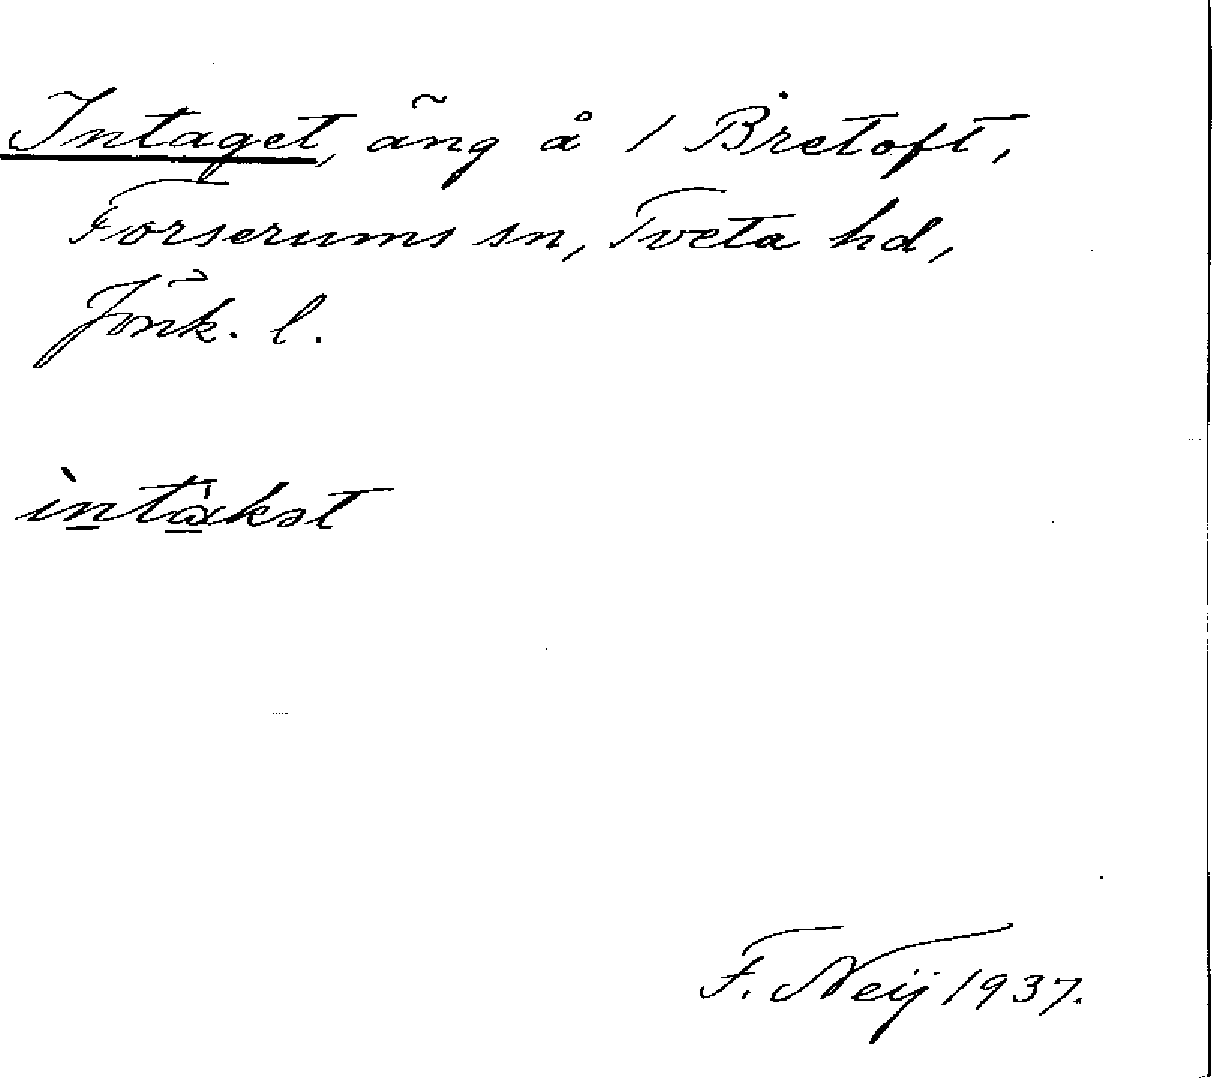 Intaget, äng å 1 Bretoft,
Forserums sn, Tveta hd,
Jönk. l.
F. Neij 1937.